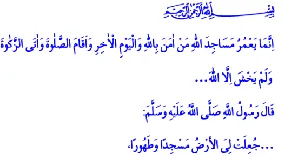 بِسْمِ اللهِ الرَّحْمٰنِ الرَّحِيمِ
اِنَّمَا يَعْمُرُ مَسَاجِدَ اللّٰهِ مَنْ اٰمَنَ بِاللّٰهِ وَالْيَوْمِ الْاٰخِرِ وَاَقَامَ الصَّلٰوةَ وَاٰتَى الزَّكٰوةَ
وَلَمْ يَخْشَ اِلَّا اللّٰهَ...
قَالَ رَسُولُ اللَّهِ صَلَّى اللَّهُ عَلَيْهِ وَسَلَّمَ:
...جُعِلَتْ لِيَ الْأَرْضُ مَسْجِدًا وَطَهُورًا،